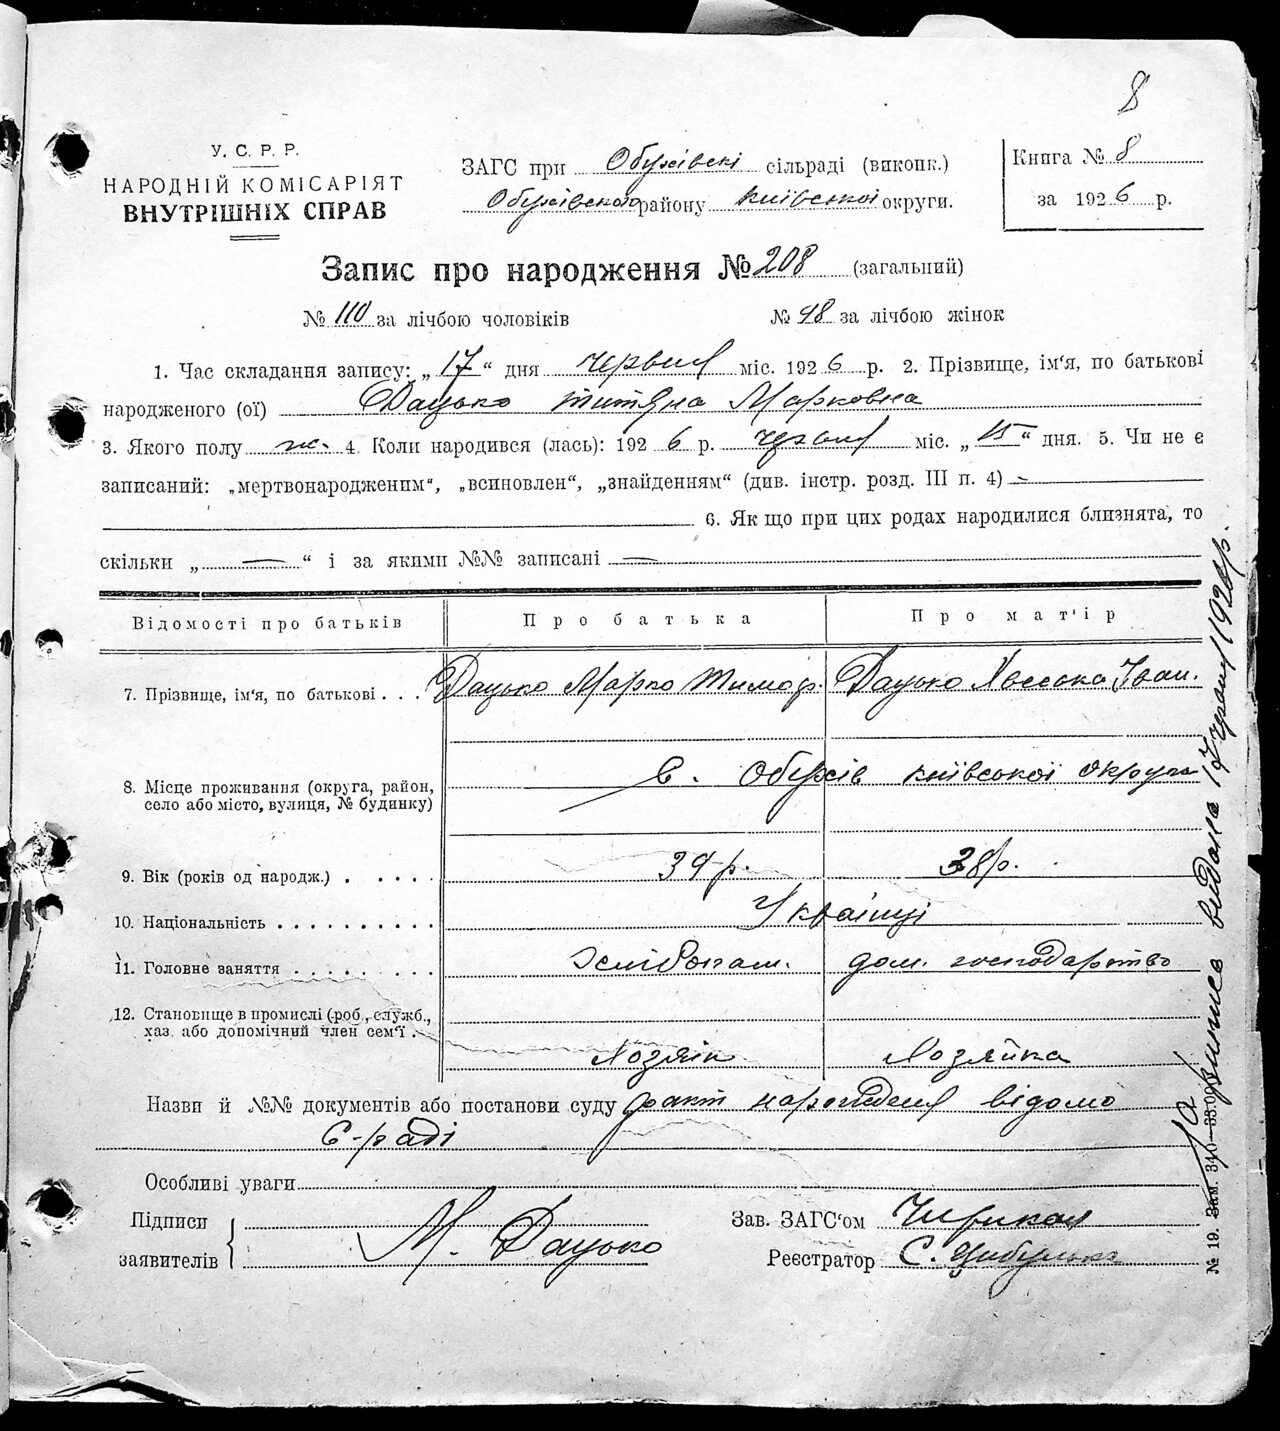 8
У. С. Р. Р.
НАРОДНІЙ КОМІСАРІЯТ
ВНУТРІШНІХ СПРАВ
ЗАГС при Обухівскі сільраді (виконк.)
Обухівского району Київської округи.
Книга № 8
за 1926 р.
Запис про народження № 208 (загальний)
№ 110 за лічбою чоловіків № 98 за лічбою жінок
1. Час складання запису: „17“ дня червня міс. 1926 р. 2. Прізвище, ім‘я, по батькові
народженого (ої) Дацько Титяна Марковна
3. Якого полу ж. 4. Коли народився (лась): 1926 р. червня міс. „15“ дня. 5. Чи не є
записаний: „мертвонародженим“, „всиновлен“, „знайденням“ (див. інстр. розд. III п. 4) —
6. Як що при цих родах народилися близнята, то
скільки „ — “ і за якими №№ записані —
Відомості про батьків Про батька Про мат‘ір
7. Прізвище, ім‘я, по батькові . . . Дацько Марко Тимоф. Дацько Хвеська Іван.
8. Місце проживання (округа, район,
село або місто, вулиця, № будинку)
с. Обухів київської округи
9. Вік (років од народж.) . . . . . 39 р. 38 р.
10. Національність . . . . . . . . . . Українці
11. Головне заняття . . . . . . . . дом. господарство
12. Становище в промислі (роб., служб.,
хаз. або допомічний член сем‘ї .
Хозяін Хозяйка
Назви й №№ документів або постанови суду факт народженя відомо
С-раді
Особливі уваги
Підписи
заявителів
М. Дацько
Зав. ЗАГС‘ом
Реєстратор С. Цибулька
№ 19. Зам. 340—33.000
Випись видана 17 червня 1926 р.